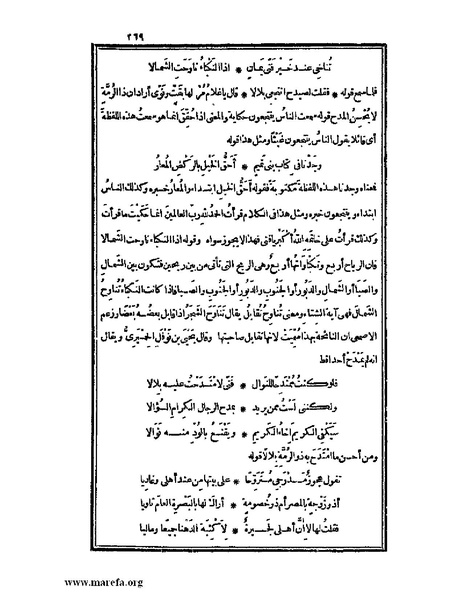 ٢٦٩
تُناخى عند خَيْر فَتًى يَمانٍ * اذا النَّكْباءُ ناوَحتِ الشَّمالا
فلما سمع قوله * فقلت لصيدح انتجعى بلالا * قال يا غلام مُرْ لها بقَتّ ونَوًى أراد ان ذا الرمَّة
لا يُحسِنُ المدح قوله سمعت الناسُ ينتجعون حكاية والمعنى اذا حُقِّق انما هو سمعت هذه اللفظةَ
أى قائلا يقول الناسُ ينتجعون غَيْثًا ومثل هذا قوله
وجَدْنا فى كتاب بنى تميم * أحَقُّ الخيلِ بالرَّكْضِ المُعارُ
فمعناه وجدنا هذه اللفظةَ مكتوبة فقوله أحَقُّ الخيل ابتداء والمُعارُ خبره وكذلك الناسُ
ابتداء وينتجعون خبره ومثل هذا فى الكلام قرأتُ الحمدُ لله ربِّ العالمين انما حَكَيْتَ ما قرأت
وكذلك قرأتُ على خاتمه اللهُ أكبر يافتى فهذا لا يجوز سواه وقوله اذا النكباء ناوحت الشمالا
فان الرياح أربع ونكباواتها أربع وهى الريح التى تأتى من بين ريحين فتكون بين الشمال
والصبا أو الشمال والدَّبور أو الجنوب والدبور أو الجنوب والصبا فاذا كانت النكباءُ تُناوِحُ
الشَّمالَ فهى آية الشتاء ومعنى تُناوِحُ تُقابِلُ يقال تَناوَحَ الشجرُ اذا قابل بعضُه بعضًا وزعم
الاصمعى ان النائحة بهذا سُمّيت لانها تقابل صاحبتها وقال يحيى بن نوفل الحميرىُّ ويقال
انه لم يَمْدَحْ أحدا قط
فلو كنتُ مُمْتَدِحًا للنوالِ * فَتًى لامْتَدَحْتُ عليه بِلالا
ولكننى لستُ ممن يريد * بمدح الرجال الكِرامِ السُّؤالا
سيَكْفى الكريمَ إخاءُ الكريم * ويَقْنَعُ بالوُدِّ منه نَوالا
ومن أحسن ما امتَدَح به ذو الرُّمَّة بِلالا قوله
تقول عجوزٌ مَدْرَجى مُتَرَوِّحًا * على بيتها من عند أهلى وغاديا
أذو زَوْجةٍ بالمصر أم ذو خصومةٍ * أراك لها بالبَصْرةِ العامَ ثاويا
فقلتُ لها لا إنّ أهلى لجيرةٌ * لِأكْثِبةِ الدَّهْنا جميعًا وماليا
www.marefa.org